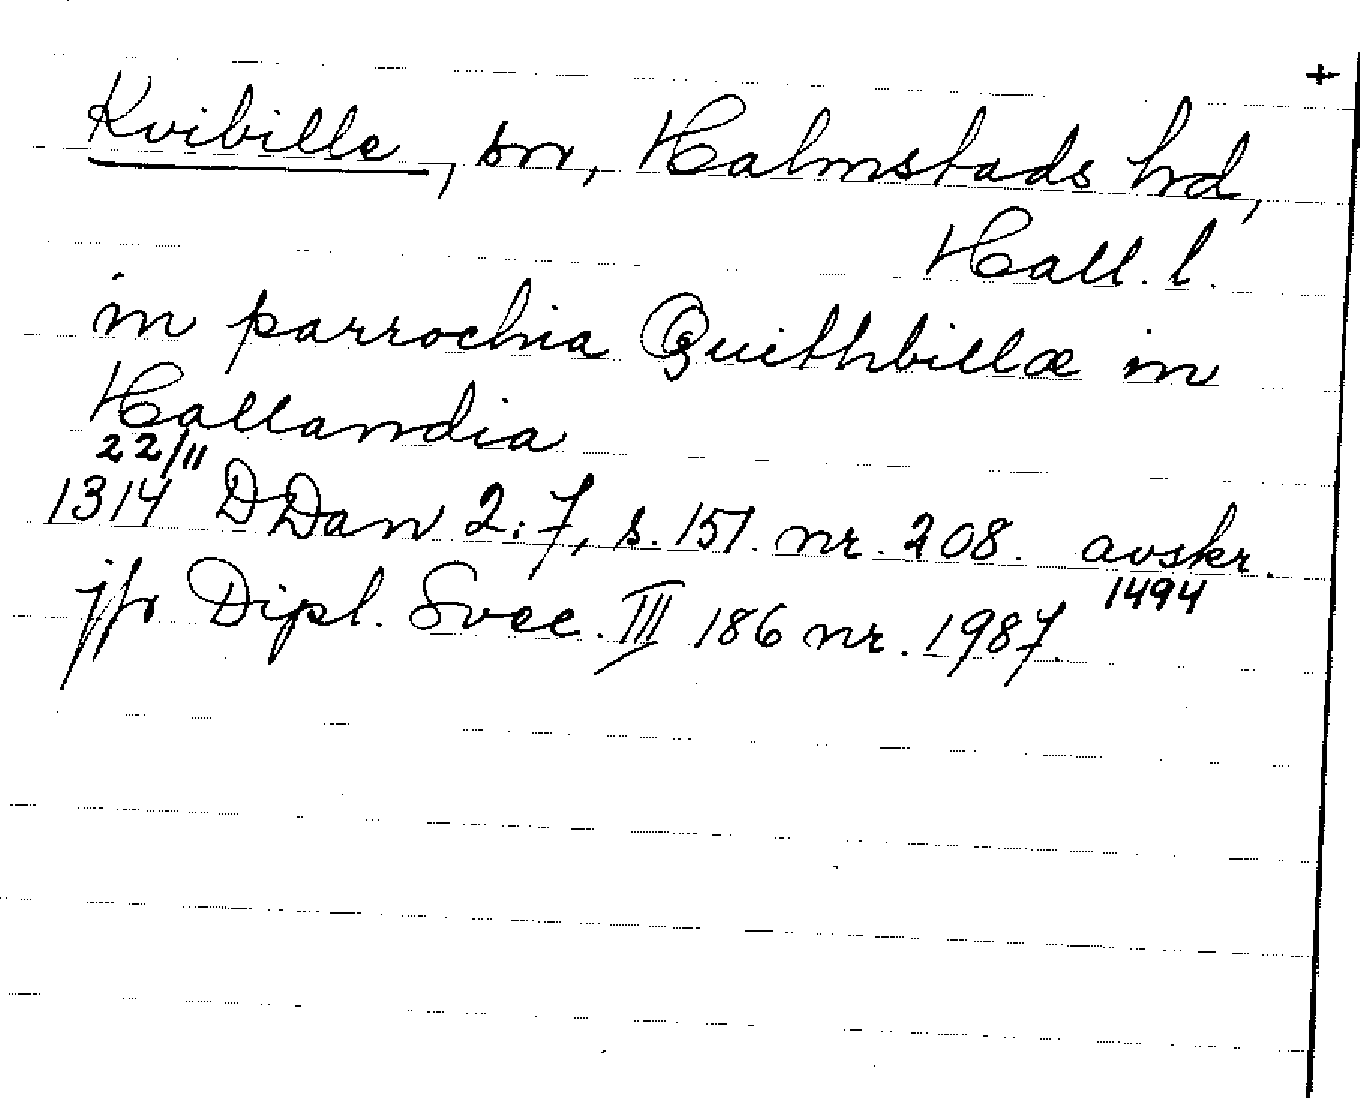 +
Kvibille, sn, Halmstads hd,
Hall. l.
in parrochia Quithbillæ in
Hallandia
22/11
1314 DDan 2:7, s. 151. nr. 208. avskr.
1494
jfr Dipl. Svec. III 186 nr. 1987.